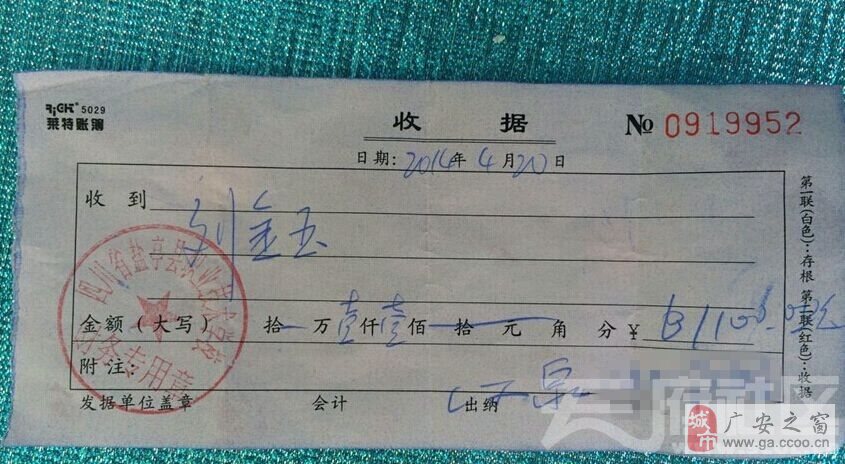 RiGHT® 5029
莱特账簿
收 据
№ 0919952
日期: 2014年 4月20日
收 到
刘金玉
金额（大写） 拾 万壹仟壹佰 拾 元 角 分 ¥ 1100.00元
附注:
发据单位盖章 会计 出纳
四川省盐亭县职业技术学校
财务专用章
第一联(白色):存根 第二联(红色):收据
城市
广安之窗
www.ga.ccoo.cn